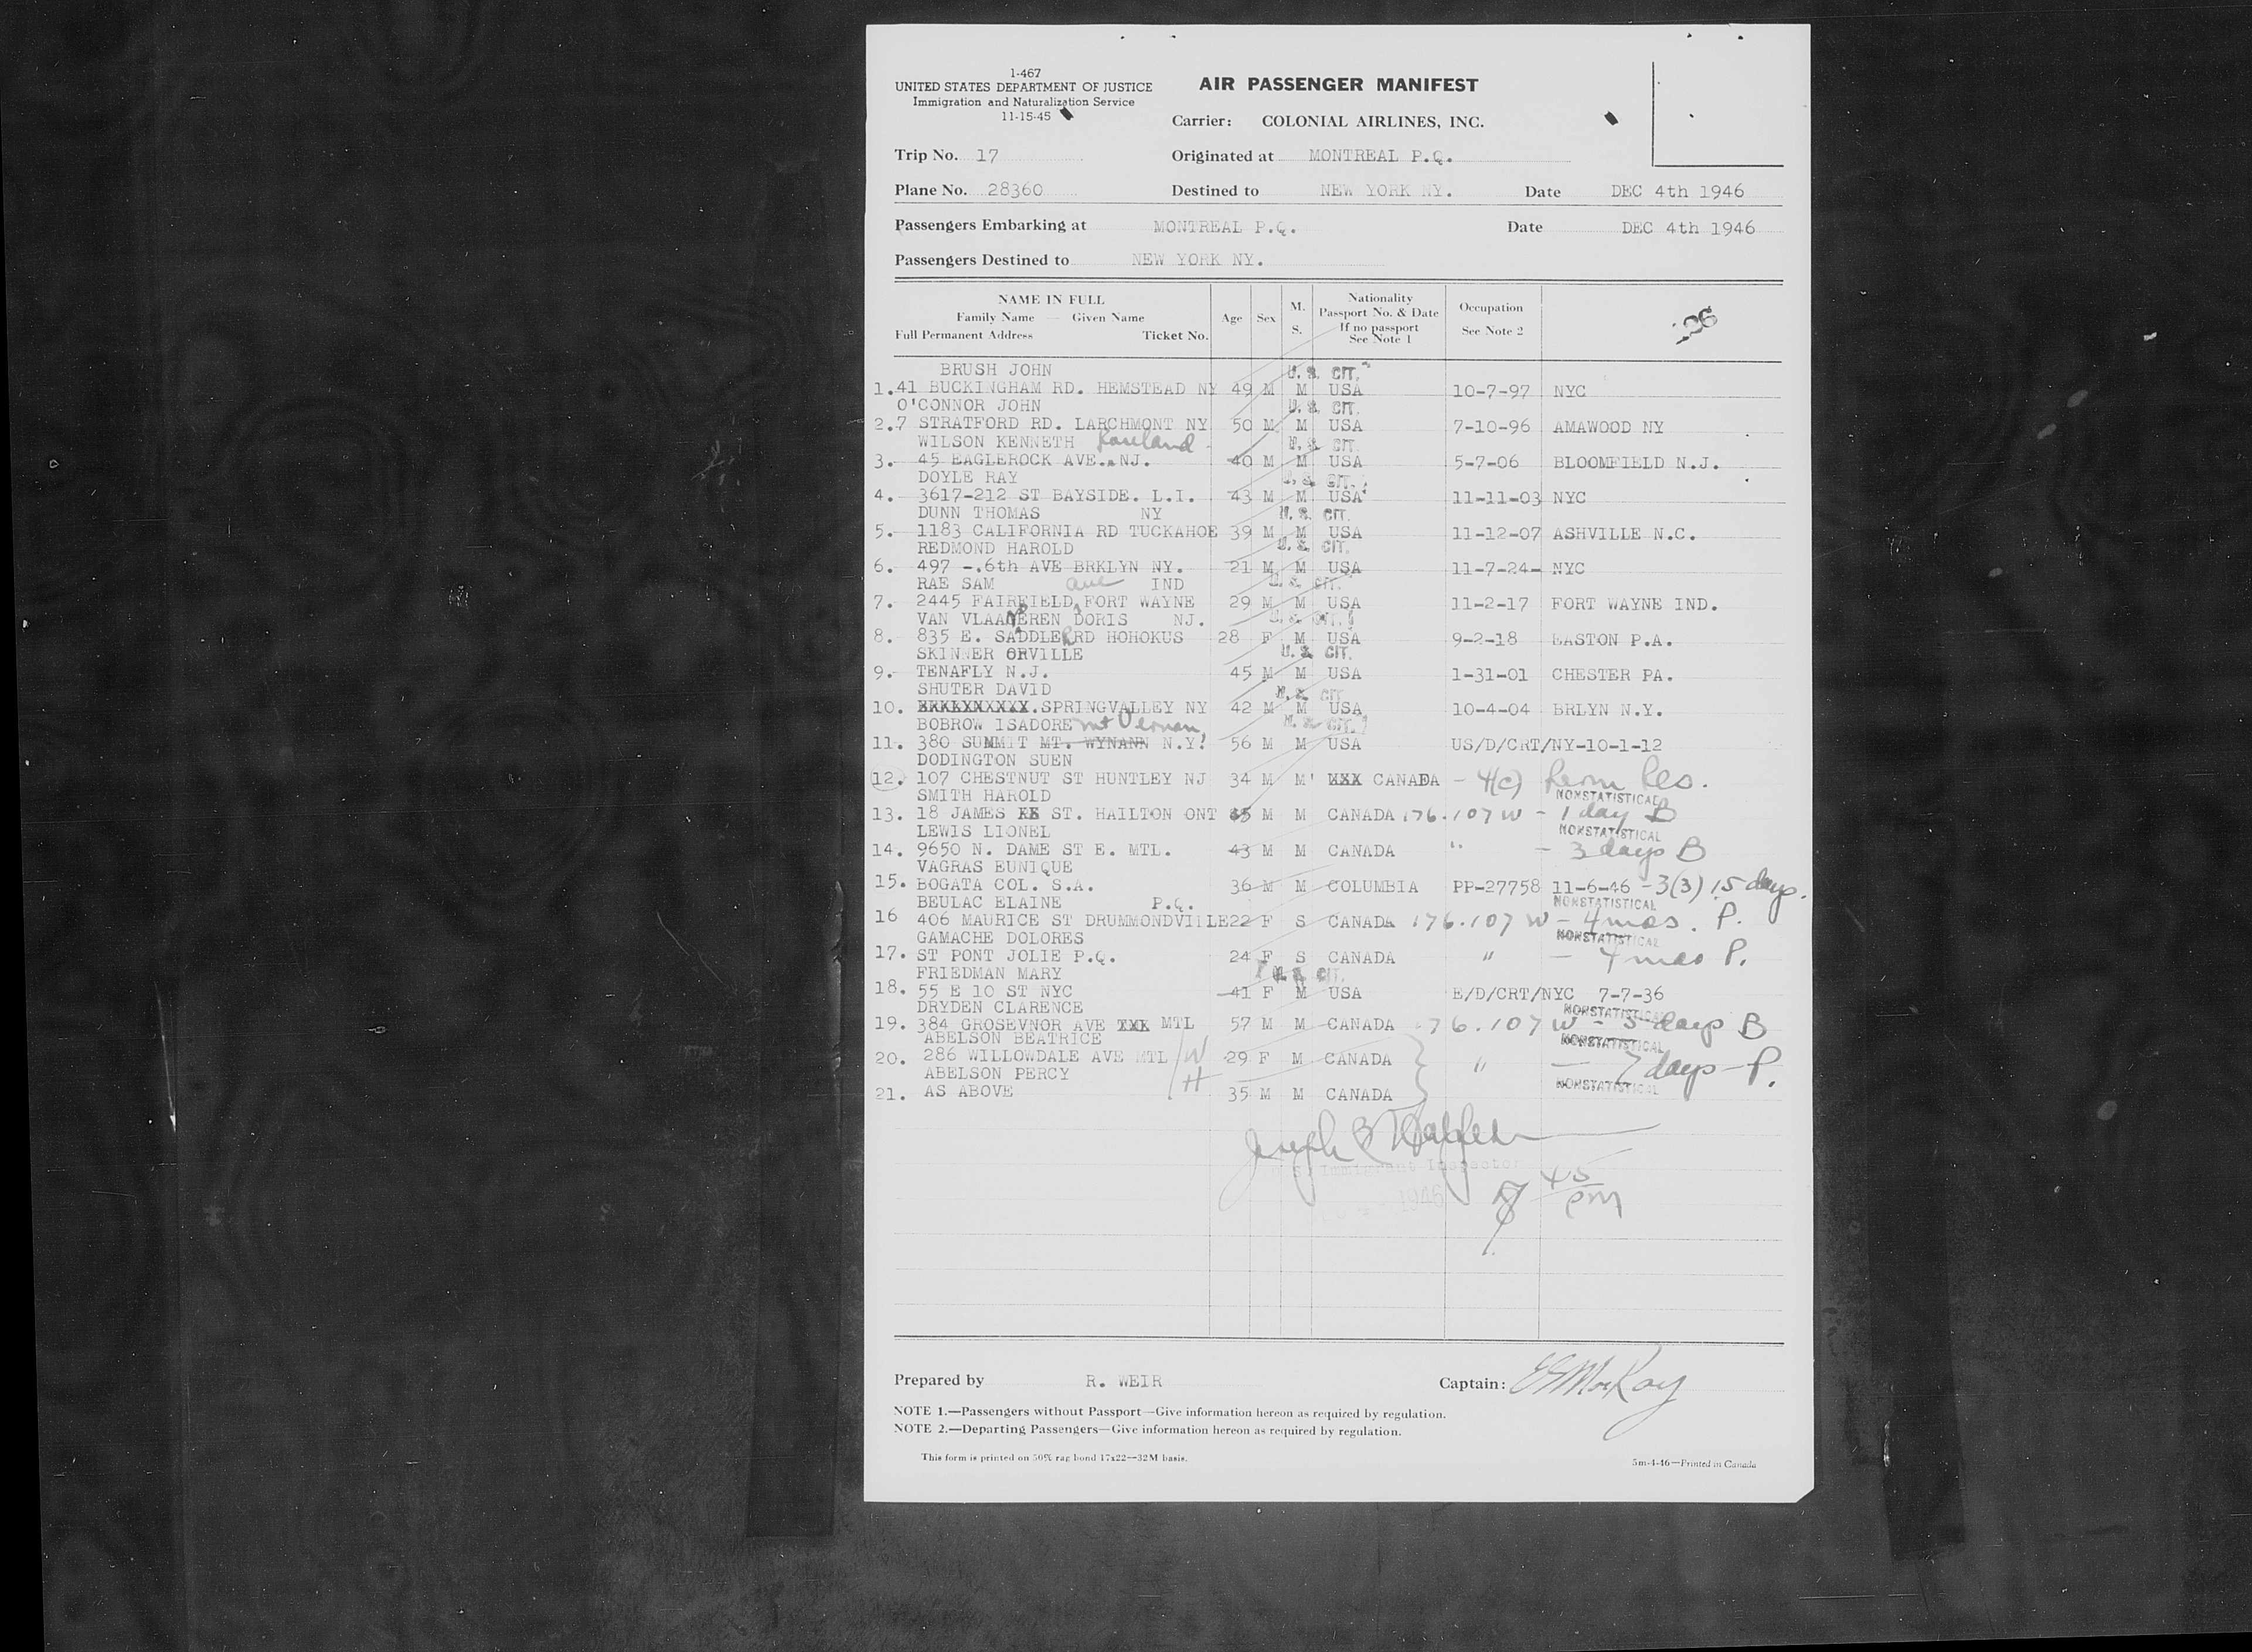 1-467
UNITED STATES DEPARTMENT OF JUSTICE
Immigration and Naturalization Service
11-15-45
AIR PASSENGER MANIFEST
Carrier: COLONIAL AIRLINES, INC.
Trip No. 17 Originated at MONTREAL P.Q.
Plane No. 28360 Destined to NEW YORK NY. Date DEC 4th 1946
Passengers Embarking at MONTREAL P.Q. Date DEC 4th 1946
Passengers Destined to NEW YORK NY.
NAME IN FULL
Family Name — Given Name
Full Permanent Address Ticket No.
Age
Sex
M.
S.
Nationality
Passport No. & Date
If no passport
See Note 1
Occupation
See Note 2
BRUSH JOHN U. S. CIT.
1. 41 BUCKINGHAM RD. HEMSTEAD NY 49 M M USA 10-7-97 NYC
O'CONNOR JOHN U. S. CIT.
2. 7 STRATFORD RD. LARCHMONT NY 50 M M USA 7-10-96 AMAWOOD NY
WILSON KENNETH U. S. CIT.
3. 45 EAGLEROCK AVE. NJ. 40 M M USA 5-7-06 BLOOMFIELD N.J.
DOYLE RAY U. S. CIT.
4. 3617-212 ST BAYSIDE. L.I. 43 M M USA 11-11-03 NYC
DUNN THOMAS NY U. S. CIT.
5. 1183 CALIFORNIA RD TUCKAHOE 39 M M USA 11-12-07 ASHVILLE N.C.
REDMOND HAROLD U. S. CIT.
6. 497 -.6th AVE BRKLYN NY. 21 M M USA 11-7-24- NYC
RAE SAM ave IND U. S. CIT.
7. 2445 FAIRFIELD FORT WAYNE 29 M M USA 11-2-17 FORT WAYNE IND.
VAN VLAANDEREN DORIS NJ. U. S. CIT.
8. 835 E. SADDLER RD HOHOKUS 28 F M USA 9-2-18 EASTON P.A.
SKINNER ORVILLE U. S. CIT.
9. TENAFLY N.J. 45 M M USA 1-31-01 CHESTER PA.
SHUTER DAVID U. S. CIT.
10. SPRINGVALLEY NY 42 M M USA 10-4-04 BRLYN N.Y.
BOBROW ISADORE Mt Vernon, U. S. CIT.
11. 380 SUMMIT MT. WYNANN N.Y. 56 M M USA US/D/CRT/NY-10-1-12
DODINGTON SUEN
12. 107 CHESTNUT ST HUNTLEY NJ 34 M M XXX CANADA - 4(c) Perm Res.
SMITH HAROLD NONSTATISTICAL
13. 18 JAMES ST. HAILTON ONT 45 M M CANADA 176.107 W - 1 day B
LEWIS LIONEL NONSTATISTICAL
14. 9650 N. DAME ST E. MTL. 43 M M CANADA " - 3 days B
VAGRAS EUNIQUE
15. BOGATA COL. S.A. 36 M M COLUMBIA PP-27758 11-6-46 - 3(3) 15 days.
BEULAC ELAINE P.Q. NONSTATISTICAL
16 406 MAURICE ST DRUMMONDVILLE 22 F S CANADA 176.107 W - 4 mos. P.
GAMACHE DOLORES NONSTATISTICAL
17. ST PONT JOLIE P.Q. 24 F S CANADA " - 4 mos P.
FRIEDMAN MARY U. S. CIT.
18. 55 E 10 ST NYC 41 F M USA E/D/CRT/NYC 7-7-36
DRYDEN CLARENCE NONSTATISTICAL
19. 384 GROSEVNOR AVE XXX MTL 57 M M CANADA 176.107 W - 5 days B
ABELSON BEATRICE NONSTATISTICAL
20. 286 WILLOWDALE AVE MTL W 29 F M CANADA " - 7 days - P.
ABELSON PERCY H NONSTATISTICAL
21. AS ABOVE 35 M M CANADA
Immigrant Inspector
1946
45
PM
Prepared by R. WEIR Captain: EG MacKay
NOTE 1.—Passengers without Passport—Give information hereon as required by regulation.
NOTE 2.—Departing Passengers—Give information hereon as required by regulation.
This form is printed on 50% rag bond 17x22—32M basis. 5m-4-46—Printed in Canada